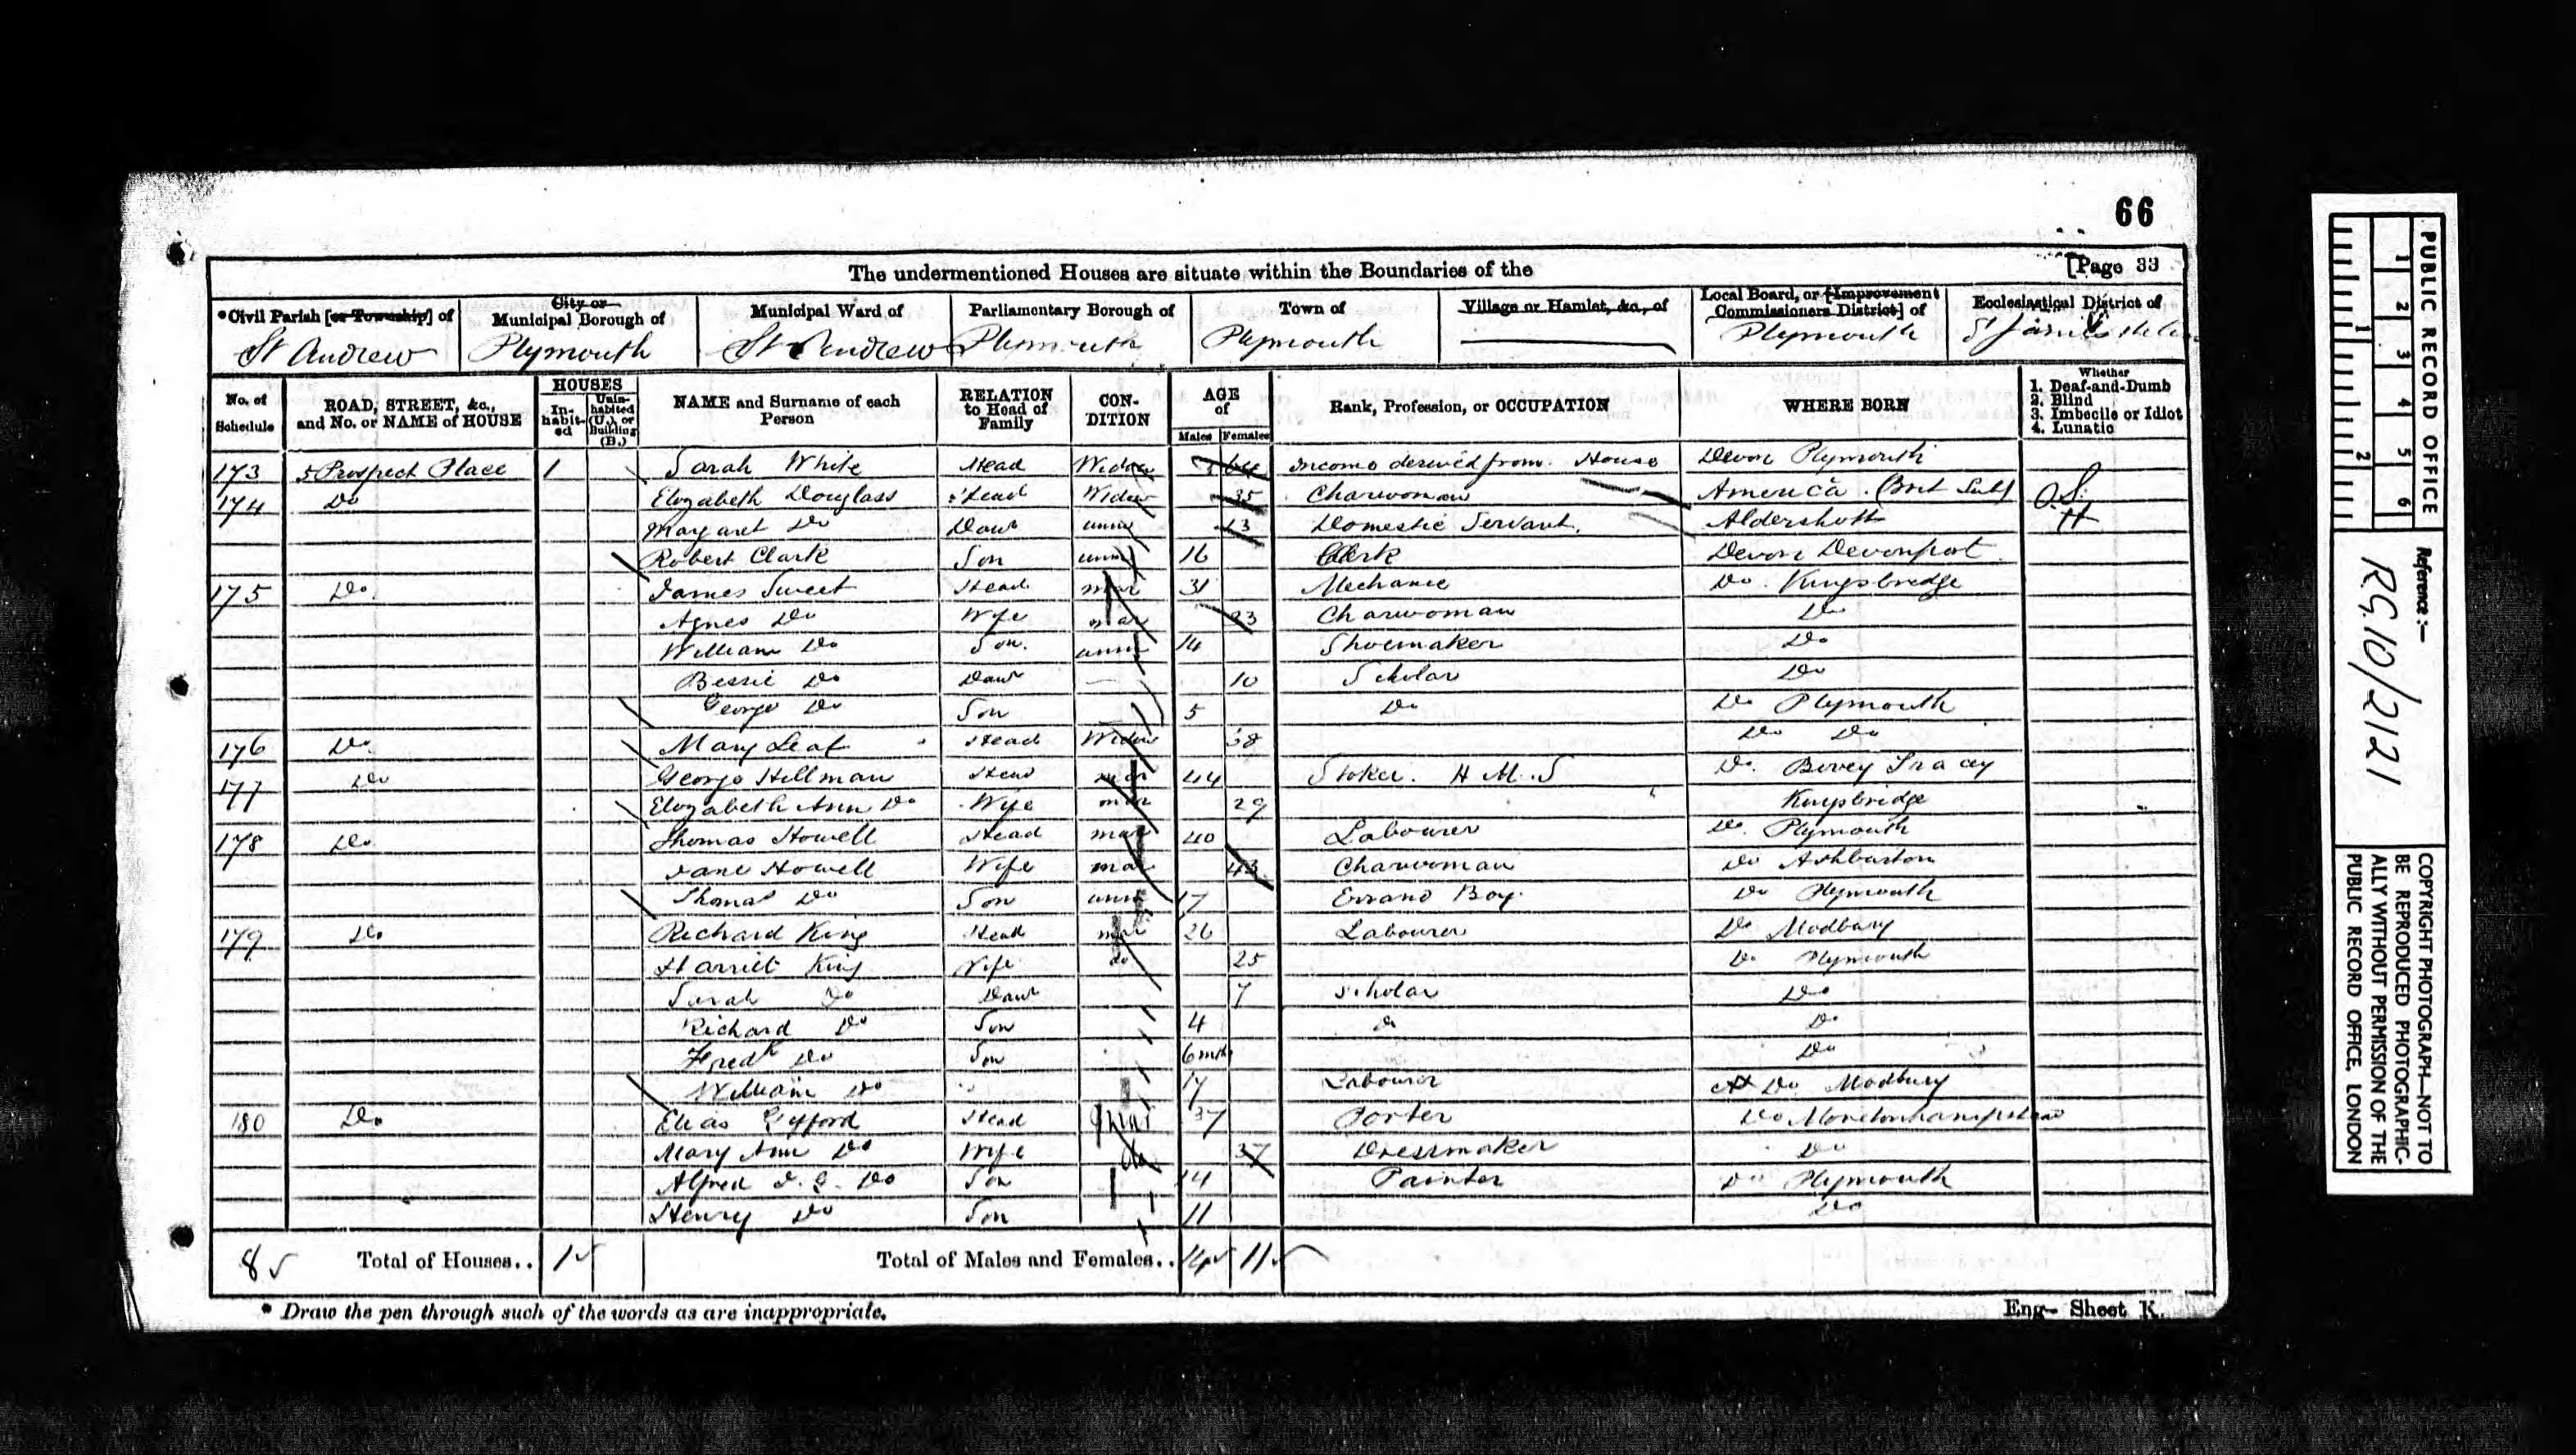 66
The undermentioned Houses are situate within the Boundaries of the
[Page 33
*Civil Parish [or Township] of
City or Municipal Borough of
Municipal Ward of
Parliamentary Borough of
Town of
Village or Hamlet, &c., of
Local Board, or [Improvement Commissioners District] of
Ecclesiastical District of
St Andrew Plymouth St Andrew Plymouth Plymouth Plymouth St James
No. of Schedule
ROAD, STREET, &c., and No. or NAME of HOUSE
HOUSES
In-habit-ed
Unin-habited (U.), or Building (B.)
NAME and Surname of each Person
RELATION to Head of Family
CON-DITION
AGE of
Males Females
Rank, Profession, or OCCUPATION
WHERE BORN
Whether
1. Deaf-and-Dumb
2. Blind
3. Imbecile or Idiot
4. Lunatic
173 5 Prospect Place 1 Sarah White Head Widow 64 Income derived from House Devon Plymouth
174 Do Elizabeth Douglass Head Widow 35 Charwoman America (Brit Sub)
Margaret Do Daur unm 13 Domestic Servant Aldershott
Robert Clark Son unm 16 Clerk Devon Devonport
175 Do James Sweet Head mar 31 Mechanic Do Kingsbridge
Agnes Do Wife mar 33 Charwoman Do
William Do Son unm 14 Shoemaker Do
Bessie Do Daur 10 Scholar Do
George Do Son 5 Do Do Plymouth
176 Do Mary Leaf Head Widow 38 Do Do
177 Do George Hellman Head mar 44 Stoker H.M.S Do Bovey Tracey
Elizabeth Ann Do Wife mar 29 Kingsbridge
178 Do Thomas Howell Head mar 40 Labourer Do Plymouth
Jane Howell Wife mar 43 Charwoman Do Ashburton
Thomas Do Son unm 17 Errand Boy Do Plymouth
179 Do Richard King Head mar 26 Labourer Do Modbury
Harriet King Wife do 25 Do Plymouth
Sarah Do Daur 7 Scholar Do
Richard Do Son 4 Do Do
Fredk Do Son 6 mth Do
William Do 17 Labourer Do Modbury
180 Do Elias Gifford Head mar 37 Porter Do Moretonhampstead
Mary Ann Do Wife do 37 Dressmaker Do
Alfred Do Son 14 Painter Do Plymouth
Henry Do Son 11 Do
8 Total of Houses.. 1 Total of Males and Females.. 14 11
* Draw the pen through such of the words as are inappropriate.
Eng- Sheet K.
PUBLIC RECORD OFFICE
1 2 3 4 5 6
1 2
Reference:-
RG.10/2121
COPYRIGHT PHOTOGRAPH—NOT TO
BE REPRODUCED PHOTOGRAPHIC-
ALLY WITHOUT PERMISSION OF THE
PUBLIC RECORD OFFICE, LONDON